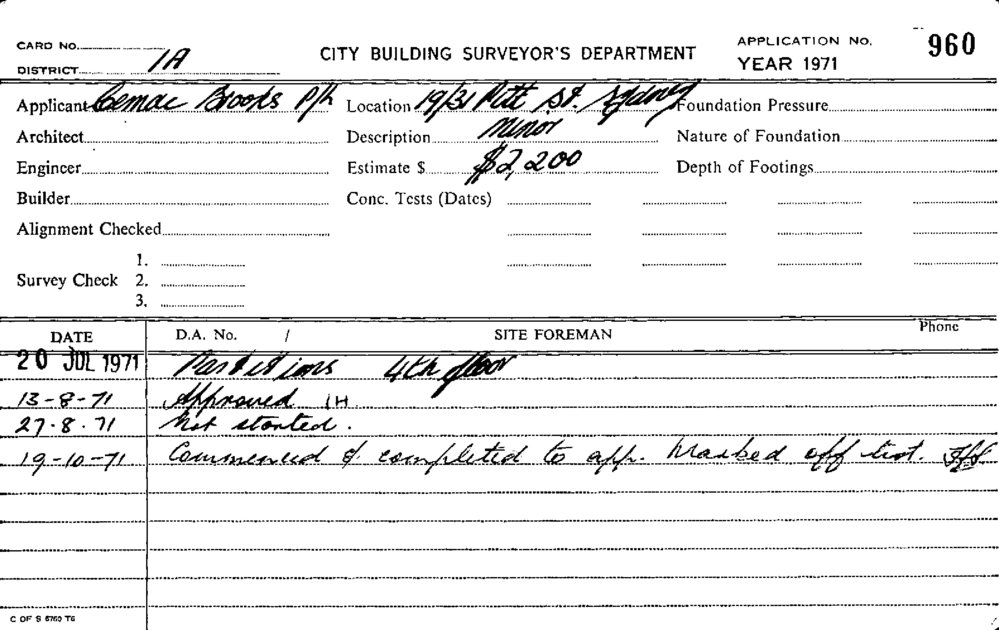 CARD NO.
DISTRICT 1A
CITY BUILDING SURVEYOR'S DEPARTMENT
APPLICATION No. 960
YEAR 1971
Applicant Cemac Brooks P/L Location 19/31 Pitt St. Sydney Foundation Pressure
Architect Description Minor Nature of Foundation
Engineer Estimate $ $2,200 Depth of Footings
Builder Conc. Tests (Dates)
Alignment Checked
1.
Survey Check 2.
3.
DATE D.A. No. / SITE FOREMAN Phone
20 JUL 1971 Partitions 4th floor
13-8-71 Approved IH
27.8.71 Not started.
19-10-71 Commenced & completed to app. Marked off list.
C OF S 6760 T6